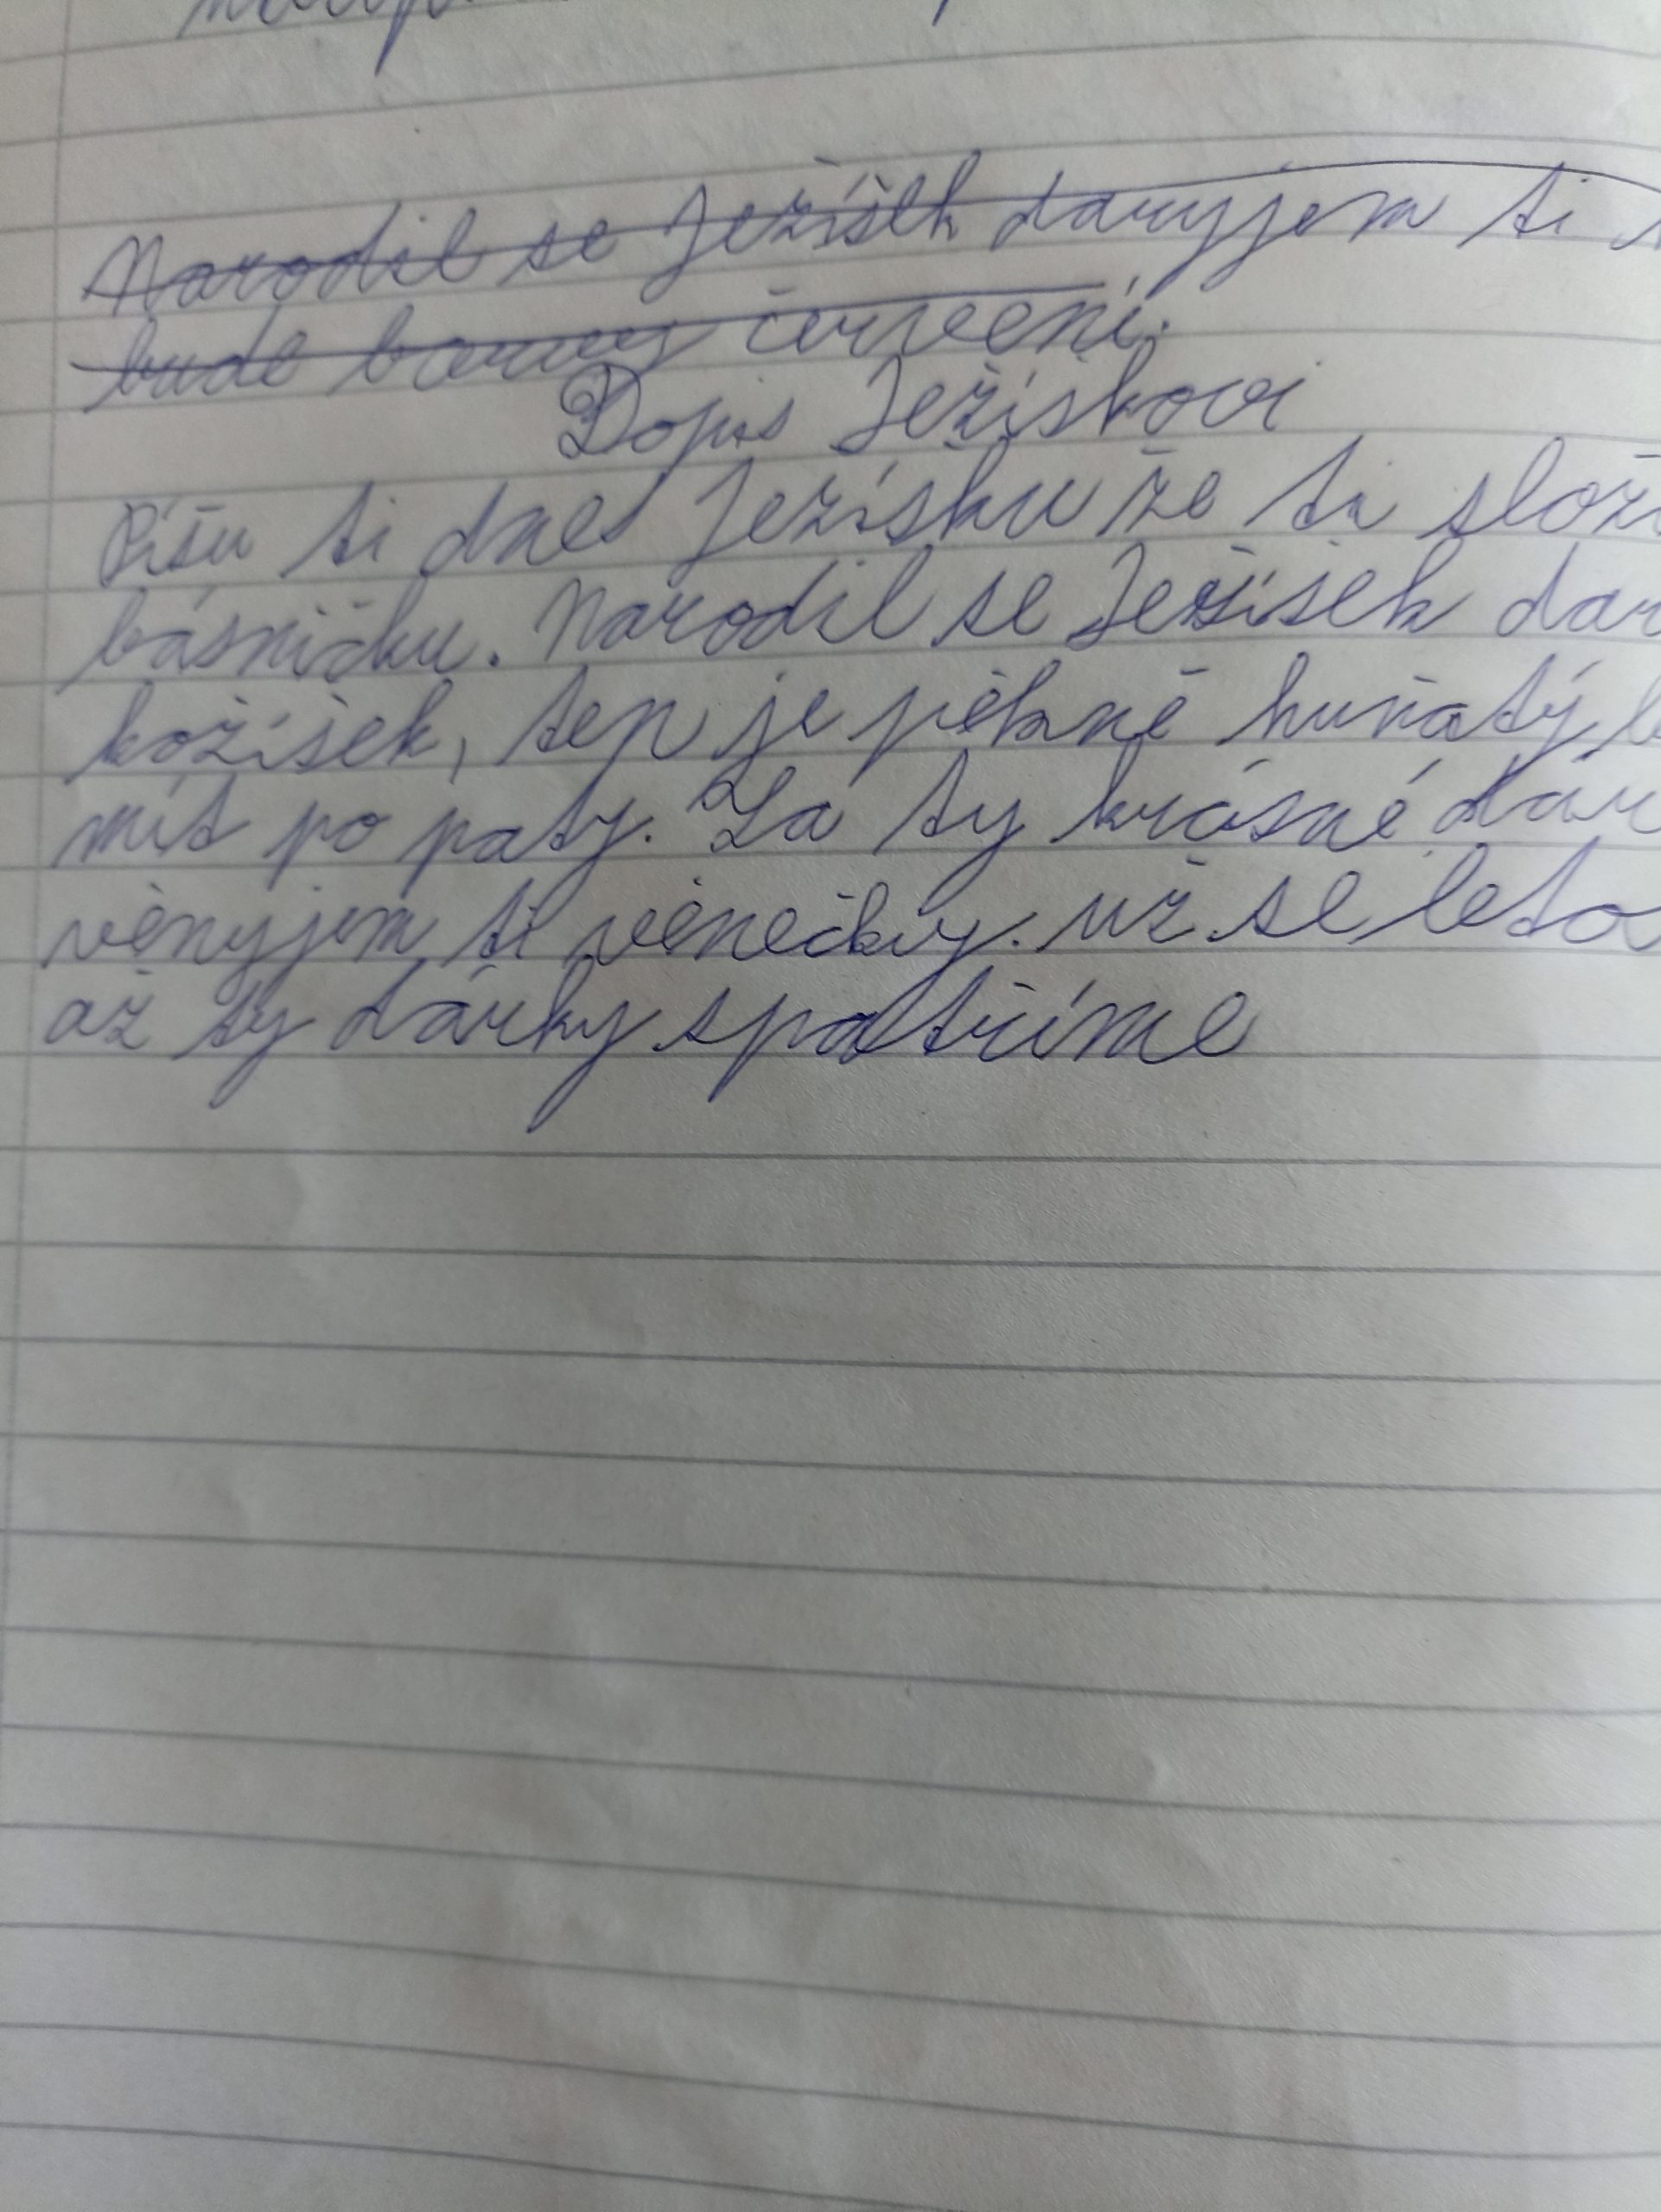 Narodil se Ježíšek daryjem ti
bude barvy červeení.
Dopis Ježíškovi
Píšu ti dnes Ježísku že ti slož
básničku. Narodil se Ježíšek dar
kožíšek, ten je pěkně huňatý
mít po paty. Za ty krásné dár
věnyjem ti věnečky. už se leto
až ty dárky spatříme